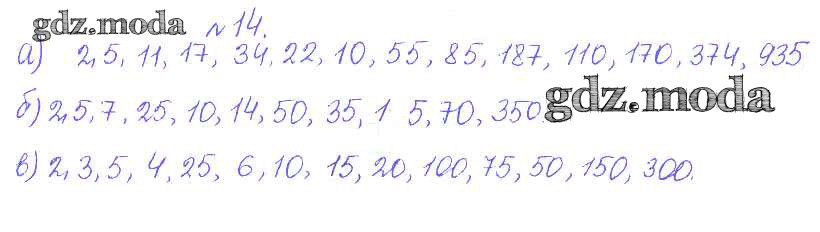 gdz.moda № 14.
а) 2, 5, 11, 17, 34, 22, 10, 55, 85, 187, 110, 170, 374, 935
б) 2, 5, 7, 25, 10, 14, 50, 35, 1 5, 70, 350. gdz.moda
в) 2, 3, 5, 4, 25, 6, 10, 15, 20, 100, 75, 50, 150, 300.